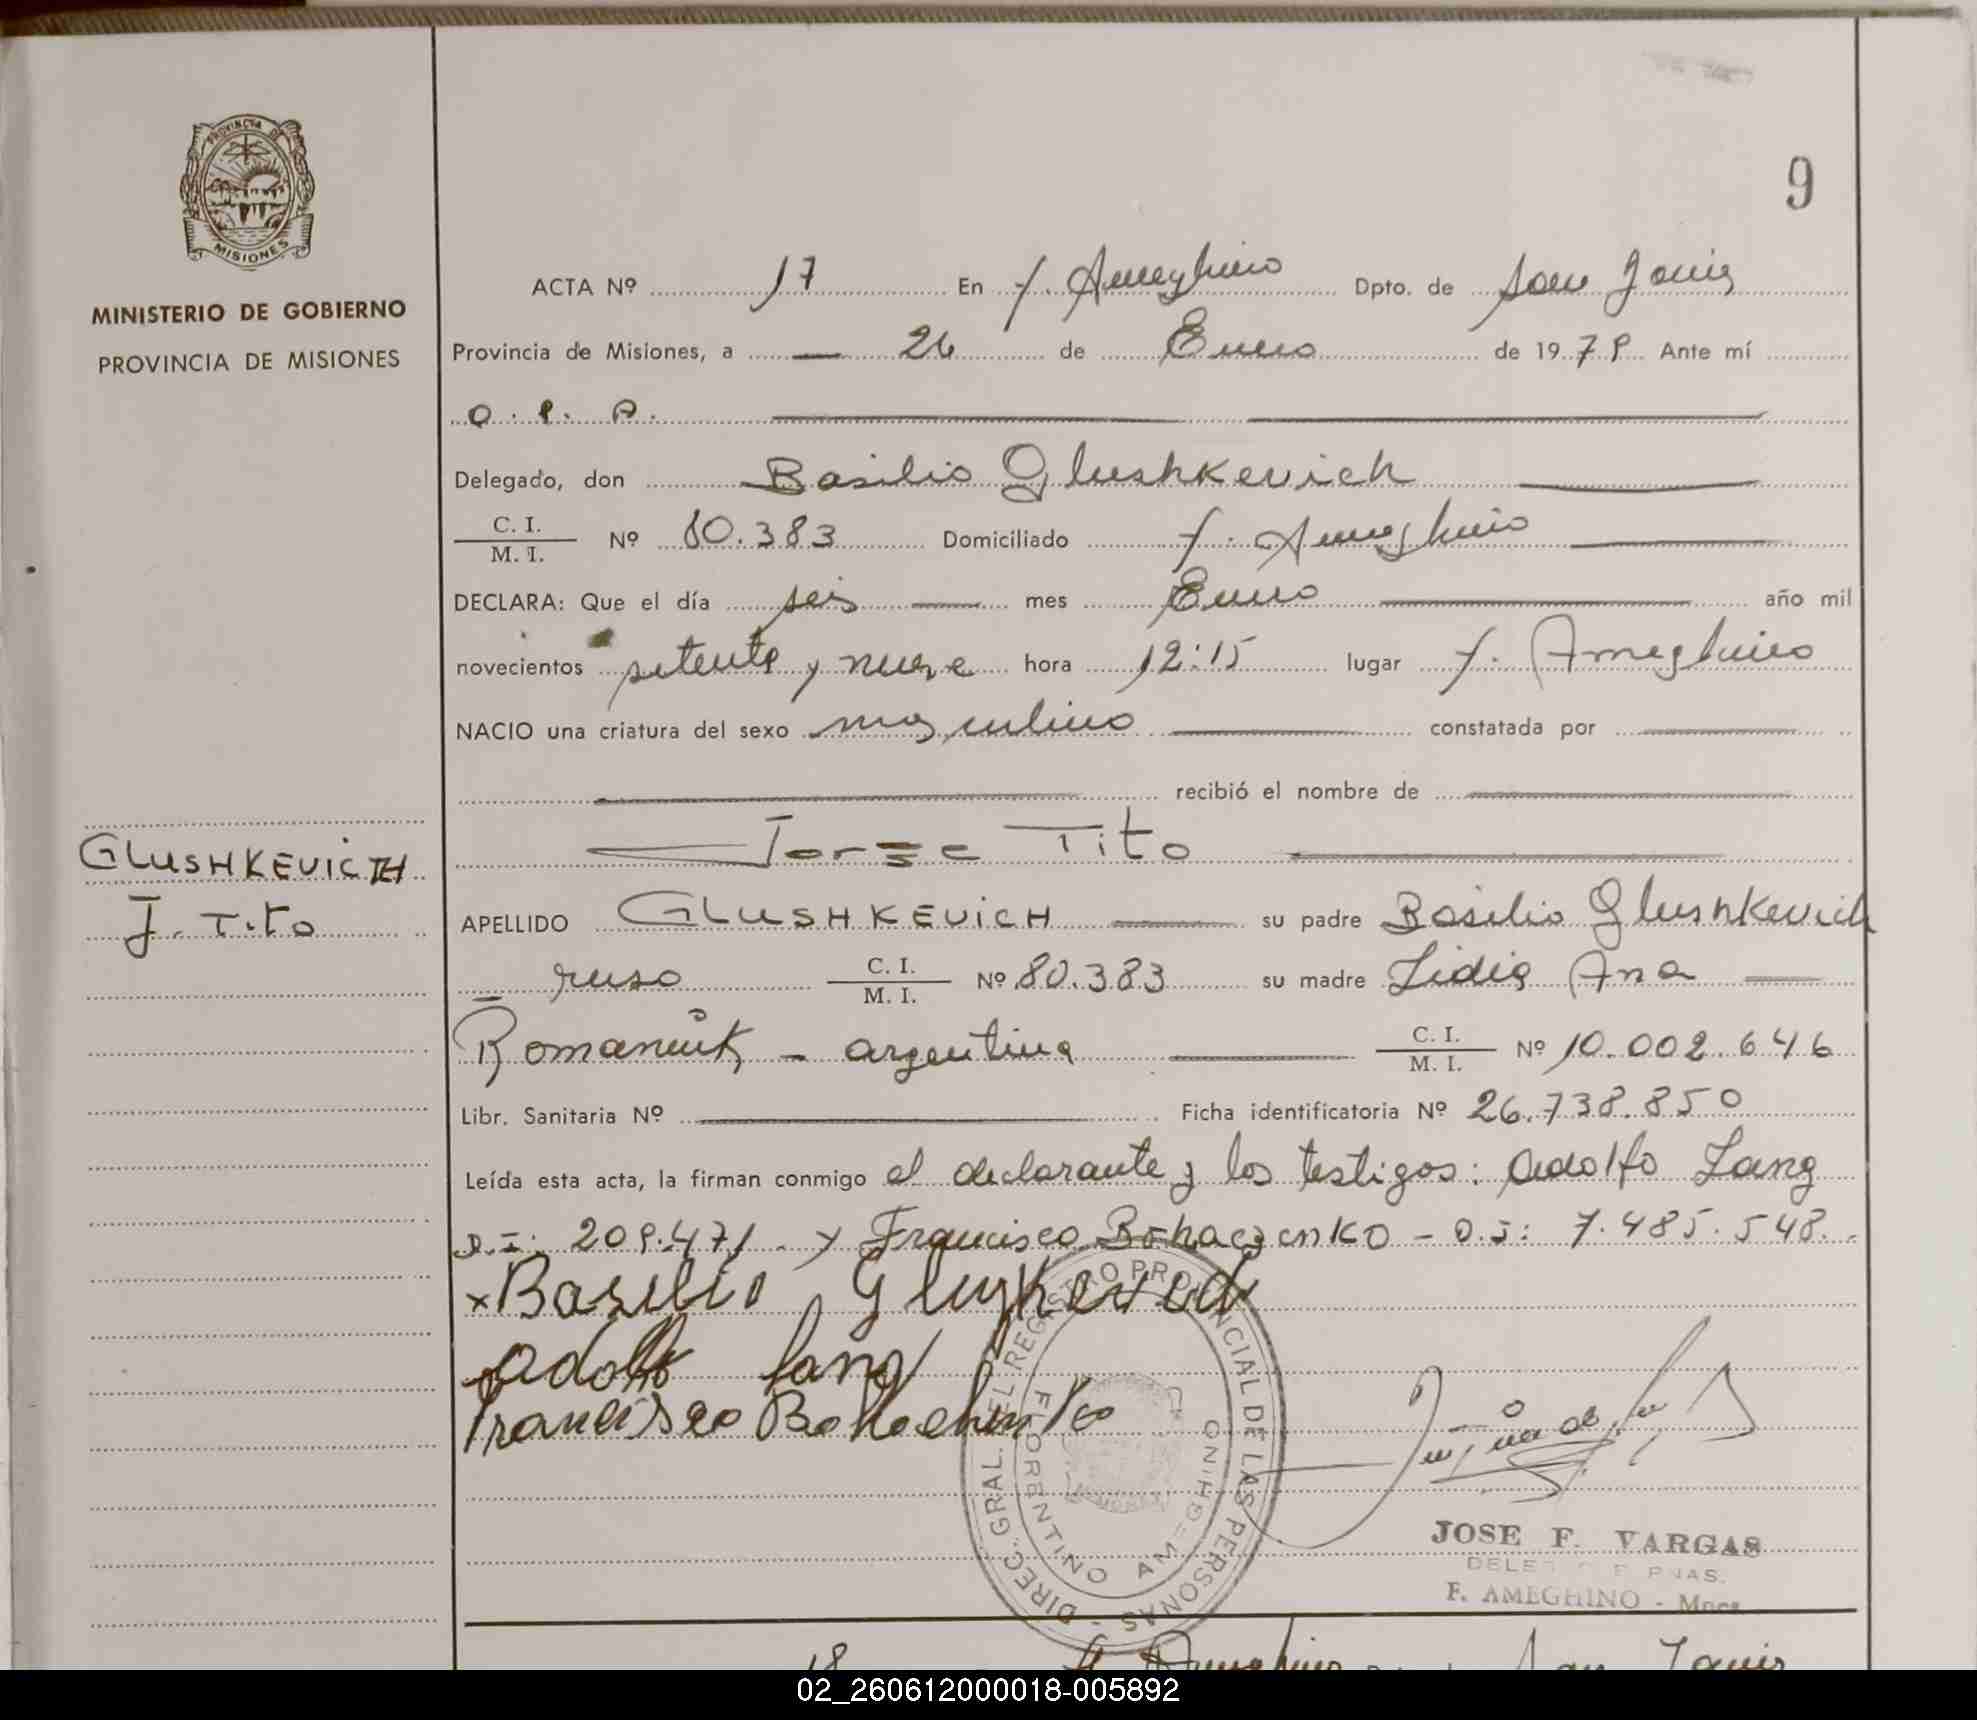 PROVINCIA DE
MISIONES
MINISTERIO DE GOBIERNO
PROVINCIA DE MISIONES
9
ACTA Nº 17 En F. Ameghino Dpto. de San Javier
Provincia de Misiones, a 26 de Enero de 1979 Ante mí
O. P. A.
Delegado, don Basilio Glushkevich
C. I. / M. I. Nº 80.383 Domiciliado F. Ameghino
DECLARA: Que el día seis mes Enero año mil
novecientos setenta y nueve hora 12:15 lugar F. Ameghino
NACIO una criatura del sexo masculino constatada por
recibió el nombre de
Jorge Tito
GLUSHKEVICH
J. Tito
APELLIDO GLUSHKEVICH su padre Basilio Glushkevich
ruso C. I. / M. I. Nº 80.383 su madre Lidia Ana
Romaniuk - argentina C. I. / M. I. Nº 10.002.646
Libr. Sanitaria Nº Ficha identificatoria Nº 26.738.850
Leída esta acta, la firman conmigo el declarante y los testigos: Adolfo Lang
D.I: 209.471 y Francisco Bohaczenko - D.I: 7.485.548.
x Basilio Glushkevich
Adolfo Lang
Francisco Bohochenko
DIREC. GRAL. DEL REGISTRO PROVINCIAL DE LAS PERSONAS -
FLORENTINO AMEGHINO
MISIONES
JOSE F. VARGAS
F. AMEGHINO - Mnes
18 F. Ameghino San Javier
02_260612000018-005892